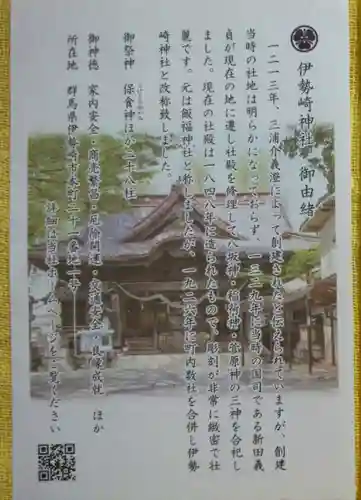 伊勢崎神社 御由緒
一二一三年、三浦介義澄によって創建されたと伝えられていますが、創建
当時の社地は明らかになっておらず、一三三九年に当時の国司である新田義
貞が現在の地に遷し社殿を修理して八坂神・稲荷神・菅原神の三神を合祀し
ました。現在の社殿は一八四八年に造られたもので、彫刻が非常に緻密で壮
麗です。元は飯福神社と称しましたが、一九二六年に町内数社を合併し伊勢
崎神社と改称致しました。
御祭神 保食神ほか二十八柱
御神徳 家内安全・商売繁盛・厄除開運・交通安全・良縁
ほか
所在地 群馬県伊勢崎市本町二十一番地一号
詳細は当社ホームページをご覧ください